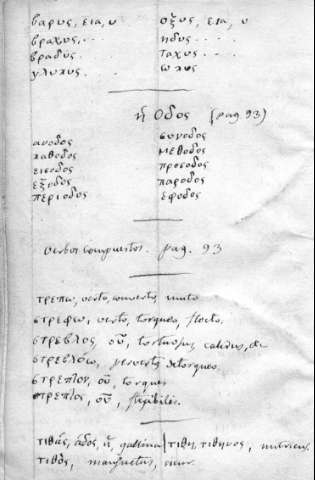 βαρυς, εια, υ οξυς, εια, υ
βραχυς, . . ηδυς . . . .
βραδυς . ταχυς . . . .
γλυκυς . ωκυς
ἡ Οδος (pag 93)
ανοδος συνοδος
καθοδος μεθοδος
εισοδος προσοδος
εξοδος παροδος
περιοδος εφοδος
verbos compuestos. pag. 93
τρεπω, verto, converto, muto
στρεφω, verto, torqueo, flecto.
στρεβλος, οῦ, tortuosus, callidus, &c
στρεβλόω, perverto, detorqueo.
στρεπτον, οῦ, torques
στρεπτος, οῦ, flexibilis.
τιθάς, άδος, ἡ, gallina | τιθη, τιθηνος, nutriens.
τιθός, mansuetus, cicur.